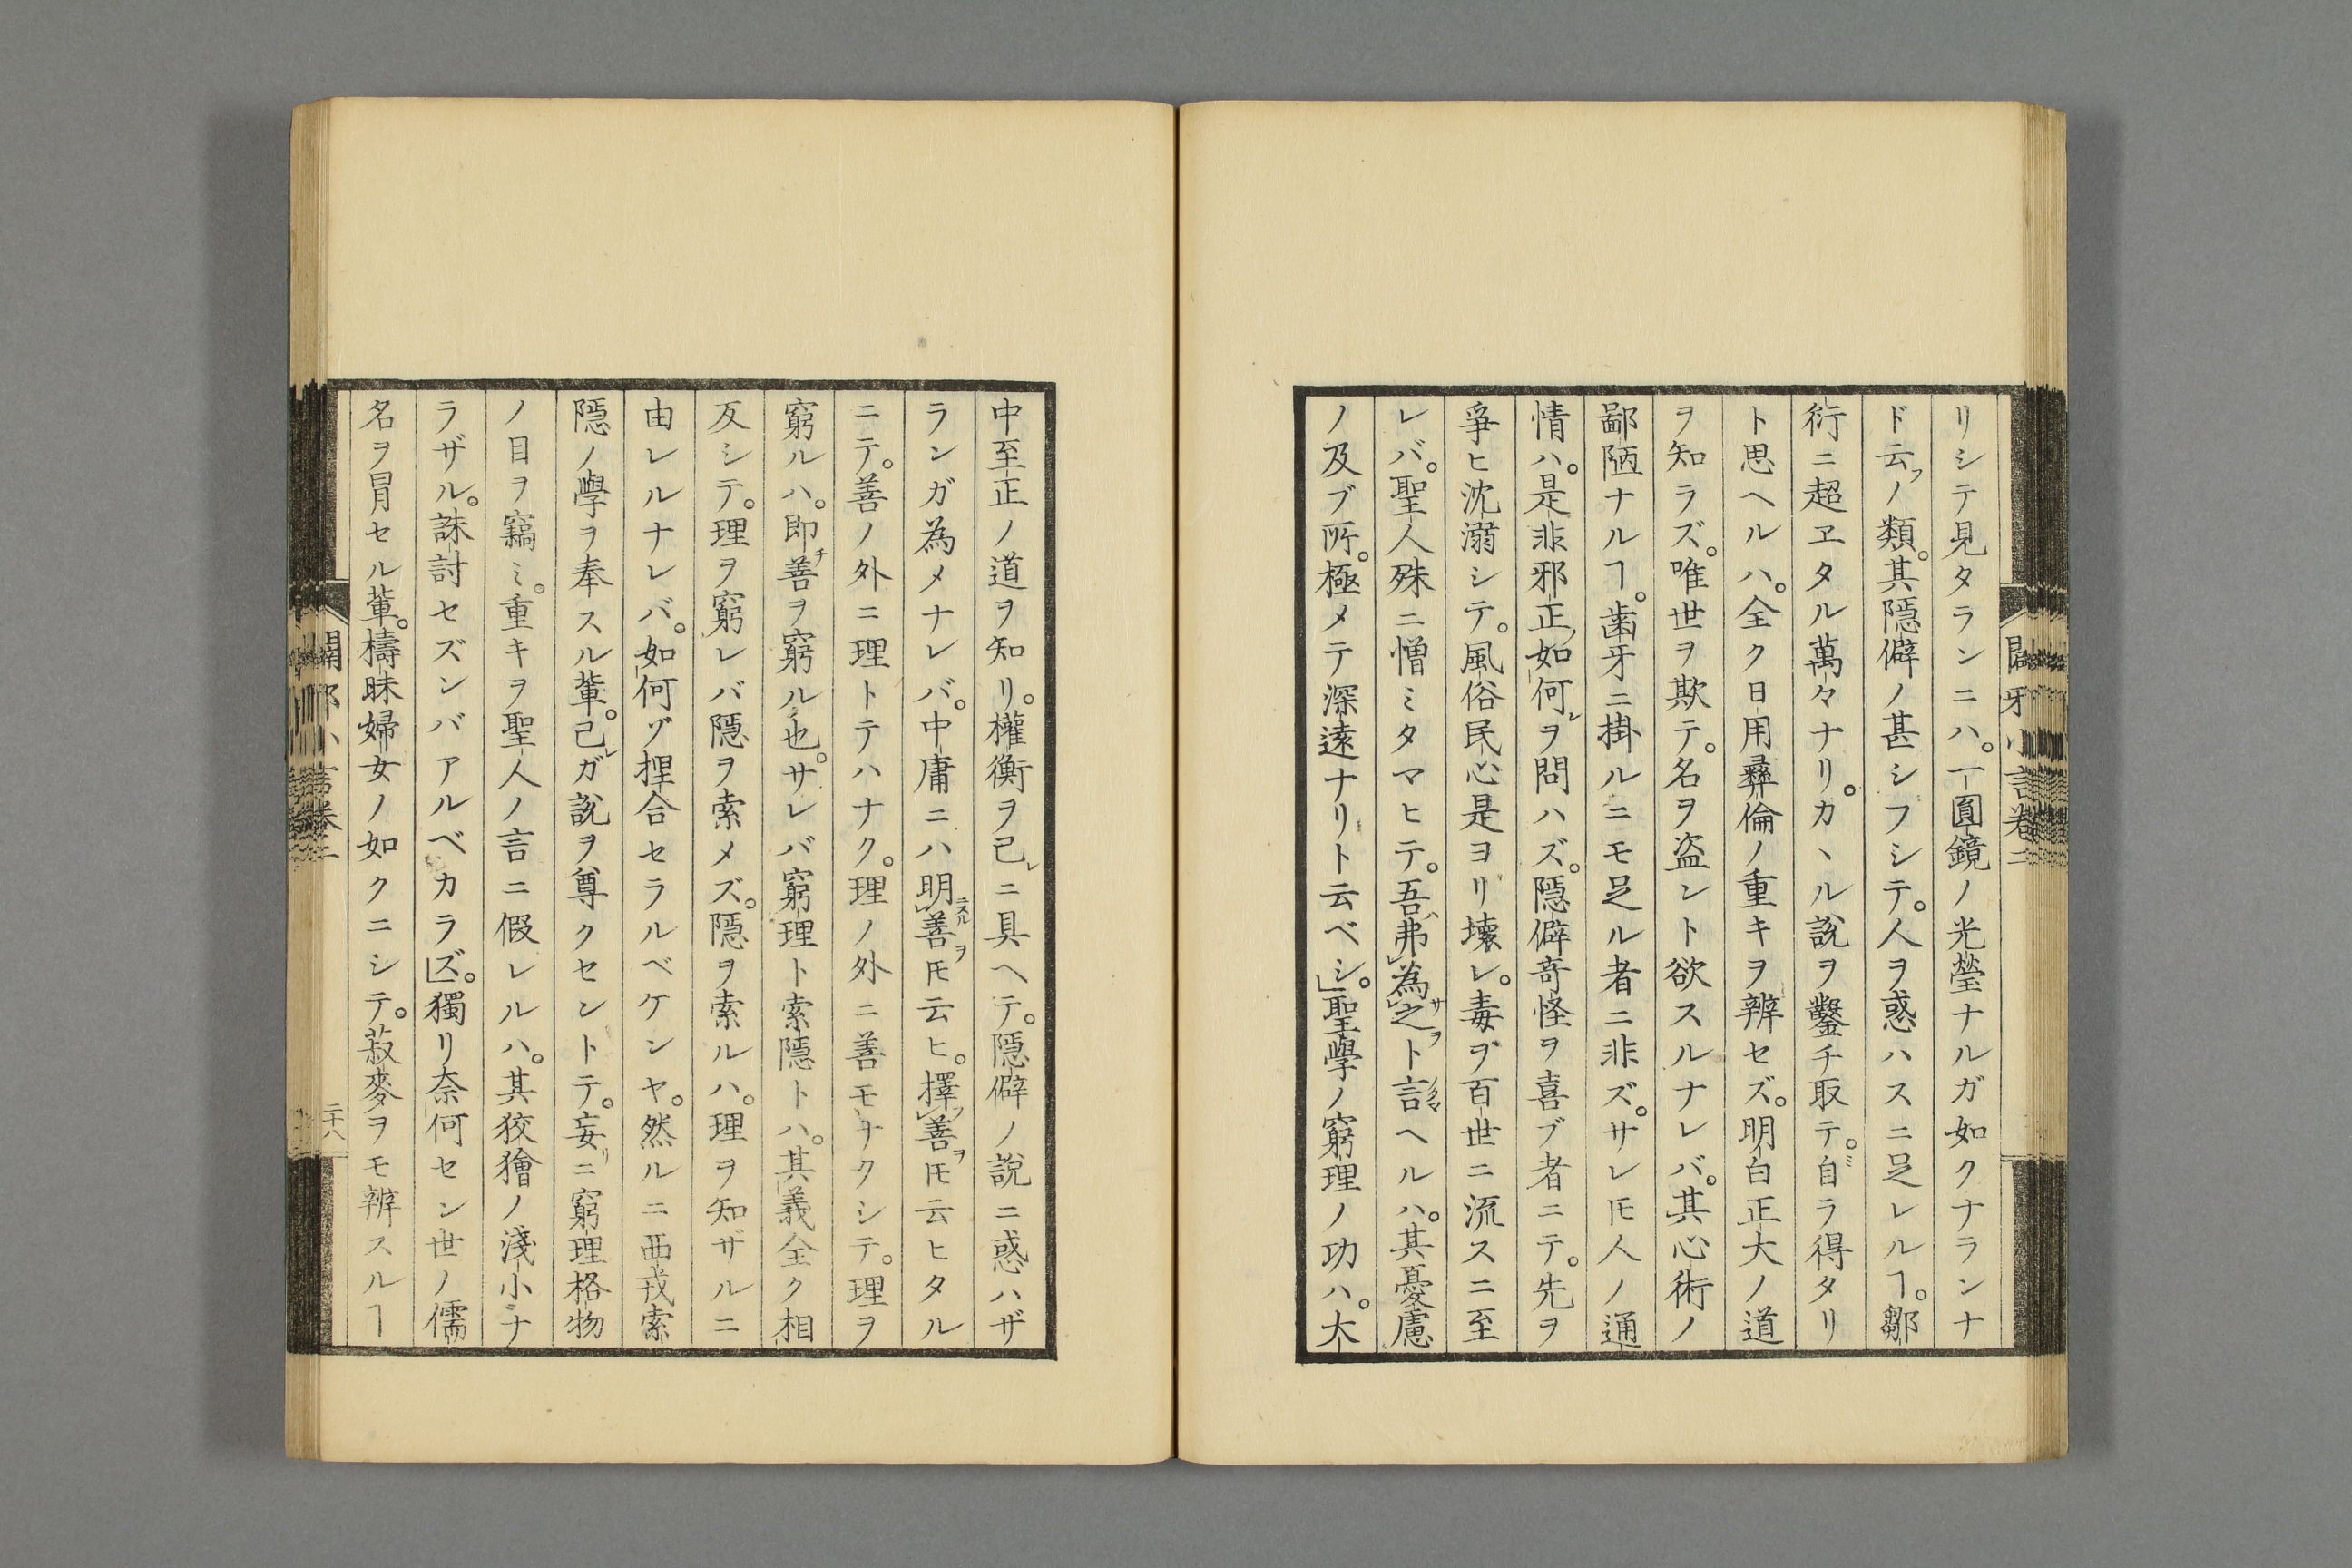 リシテ見タランニハ。一圓鏡ノ光瑩ナルガ如クナランナ
ド云フノ類。其隱僻ノ甚シフシテ。人ヲ惑ハスニ足レルヿ。鄒
衍ニ超ヱタル萬々ナリ。カヽル說ヲ鑿チ取テ。自ミラ得タリ
ト思ヘルハ。全ク日用彝倫ノ重キヲ辨セズ。明白正大ノ道
ヲ知ラズ。唯世ヲ欺テ。名ヲ盜ント欲スルナレバ。其心術ノ
鄙陋ナルヿ。齒牙ニ掛ルニモ足ル者ニ非ズ。サレ𪜈人ノ通
情ハ。是非邪正ノ如何レヲ問ハズ。隱僻竒怪ヲ喜ブ者ニテ。先ヲ
爭ヒ沈溺シテ。風俗民心是ヨリ壞レ。毒ヲ百世ニ流スニ至
レバ。聖人殊ニ憎ミタマヒテ。吾ハ弗レ為サレ之ヲト言ノタマヘルハ。其憂慮
ノ及ブ所。極メテ深遠ナリト云ベシ。」聖學ノ窮理ノ功ハ。大
中至正ノ道ヲ知リ。權衡ヲ己レニ具ヘテ。隱僻ノ說ニ惑ハザ
ランガ為メナレバ。中庸ニハ明ニスルレ善ヲ𪜈云ヒ。擇フレ善ヲ𪜈云ヒタル
ニテ。善ノ外ニ理トテハナク。理ノ外ニ善モナクシテ。理ヲ
窮ルハ。即チ善ヲ窮ル也。サレバ窮理ト索隱トハ。其義全ク相
反シテ。理ヲ窮レバ隱ヲ索メズ。隱ヲ索ルハ。理ヲ知ザルニ
由レルナレバ。如何ゾ捏合セラルベケンヤ。然ルニ西戎索
隱ノ學ヲ奉スル輩。己レガ說ヲ尊クセントテ。妄リニ窮理格物
ノ目ヲ竊ミ。重キヲ聖人ノ言ニ假レルハ。其狡獪ノ淺小ナ
ラザル。誅討セズンバアルベカラズ。」獨リ奈何セン世ノ儒
名ヲ冐セル輩。檮昧婦女ノ如クニシテ。菽麥ヲモ辨スルヿ
二十八